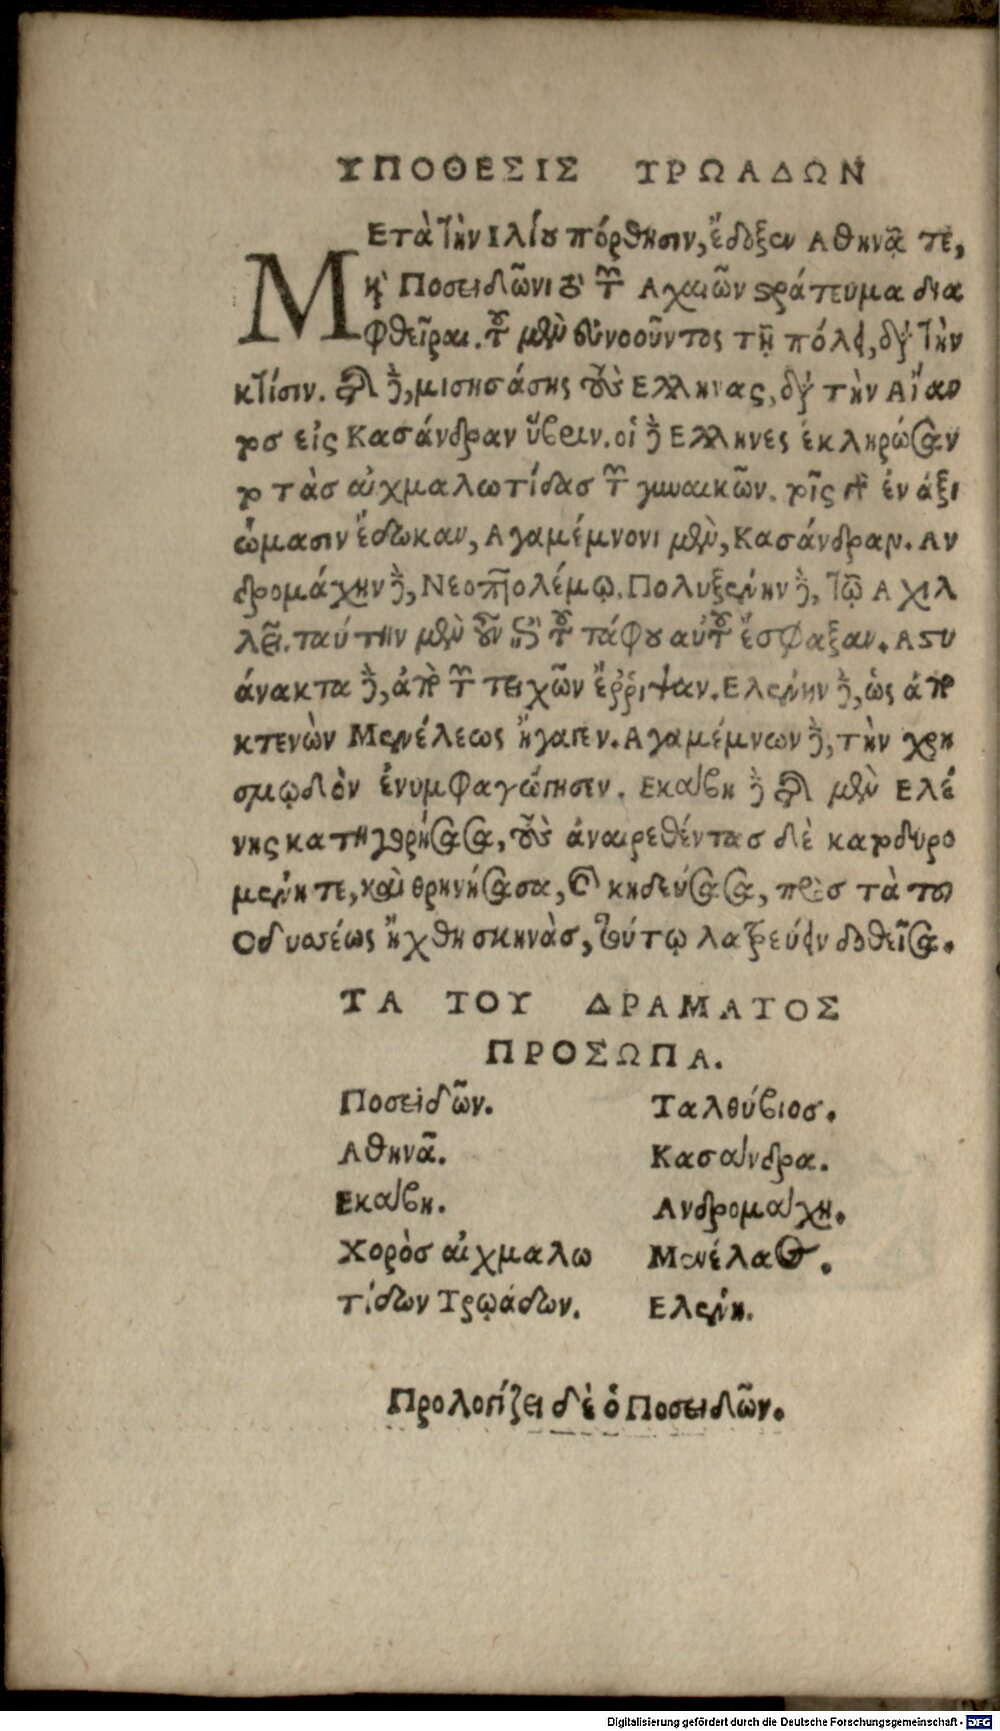 ΥΠΟΘΕΣΙΣ ΤΡΩΑΔΩΝ
ΜΕτὰ τὴν Ιλίου πόρθησιν, ἔδοξεν Αθηνᾷ τε,
καὶ Ποσειδῶνι τὸ τῶν Αχαιῶν στράτευμα δια
φθεῖραι. τοῦ μὲν εὐνοοῦντος τῇ πόλει, διὰ τὴν
κτίσιν. τῆς δὲ, μισησάσης τοὺς Ελληνας, διὰ τὴν Αἴαν
τος εἰς Κασάνδραν ὕβριν. οἱ δὲ Ελληνες ἐκληρώσαν
το τὰσ αἰχμαλωτίδασ τῶν γυναικῶν. τοῖς δὲ ἐν ἀξι
ώμασιν ἔδωκαν, Αγαμέμνονι μὲν, Κασάνδραν. Αν
δρομάχην δὲ, Νεοπτολέμῳ. Πολυξένην δὲ, τῷ Αχιλ
λεῖ. ταύτην μὲν οὖν ἐπὶ τοῦ τάφου αὐτοῦ ἔσφαξαν. Αστυ
άνακτα δὲ, ἀπὸ τῶν τειχῶν ἔῤῥιψαν. Ελένην δὲ, ὡς ἀπο
κτενὼν Μενέλεως ἤγαγεν. Αγαμέμνων δὲ, τὴν χρη
σμῳδὸν ἐνυμφαγώγησεν. Εκάβη δὲ τῆς μὲν Ελέ
νης κατηγορήσασα, τοὺς ἀναιρεθέντασ δὲ κατοδυρο
μένη τε, καὶ θρηνήσασα, καὶ κηδεύσασα, πρὸσ τὰσ τοῦ
Οδυσσέως ἤχθη σκηνὰσ, τούτῳ λατρεύειν δοθεῖσα.
ΤΑ ΤΟΥ ΔΡΑΜΑΤΟΣ
ΠΡΟΣΩΠΑ.
Ποσειδῶν. Ταλθύβιοσ.
Αθηνᾶ. Κασάνδρα.
Εκάβη. Ανδρομάχη.
Χορὸσ αἰχμαλω Μενέλαος.
τίδων Τρῳάδων. Ελένη.
Προλογίζει δὲ ὁ Ποσειδῶν.
Digitalisierung gefördert durch die Deutsche Forschungsgemeinschaft - DFG